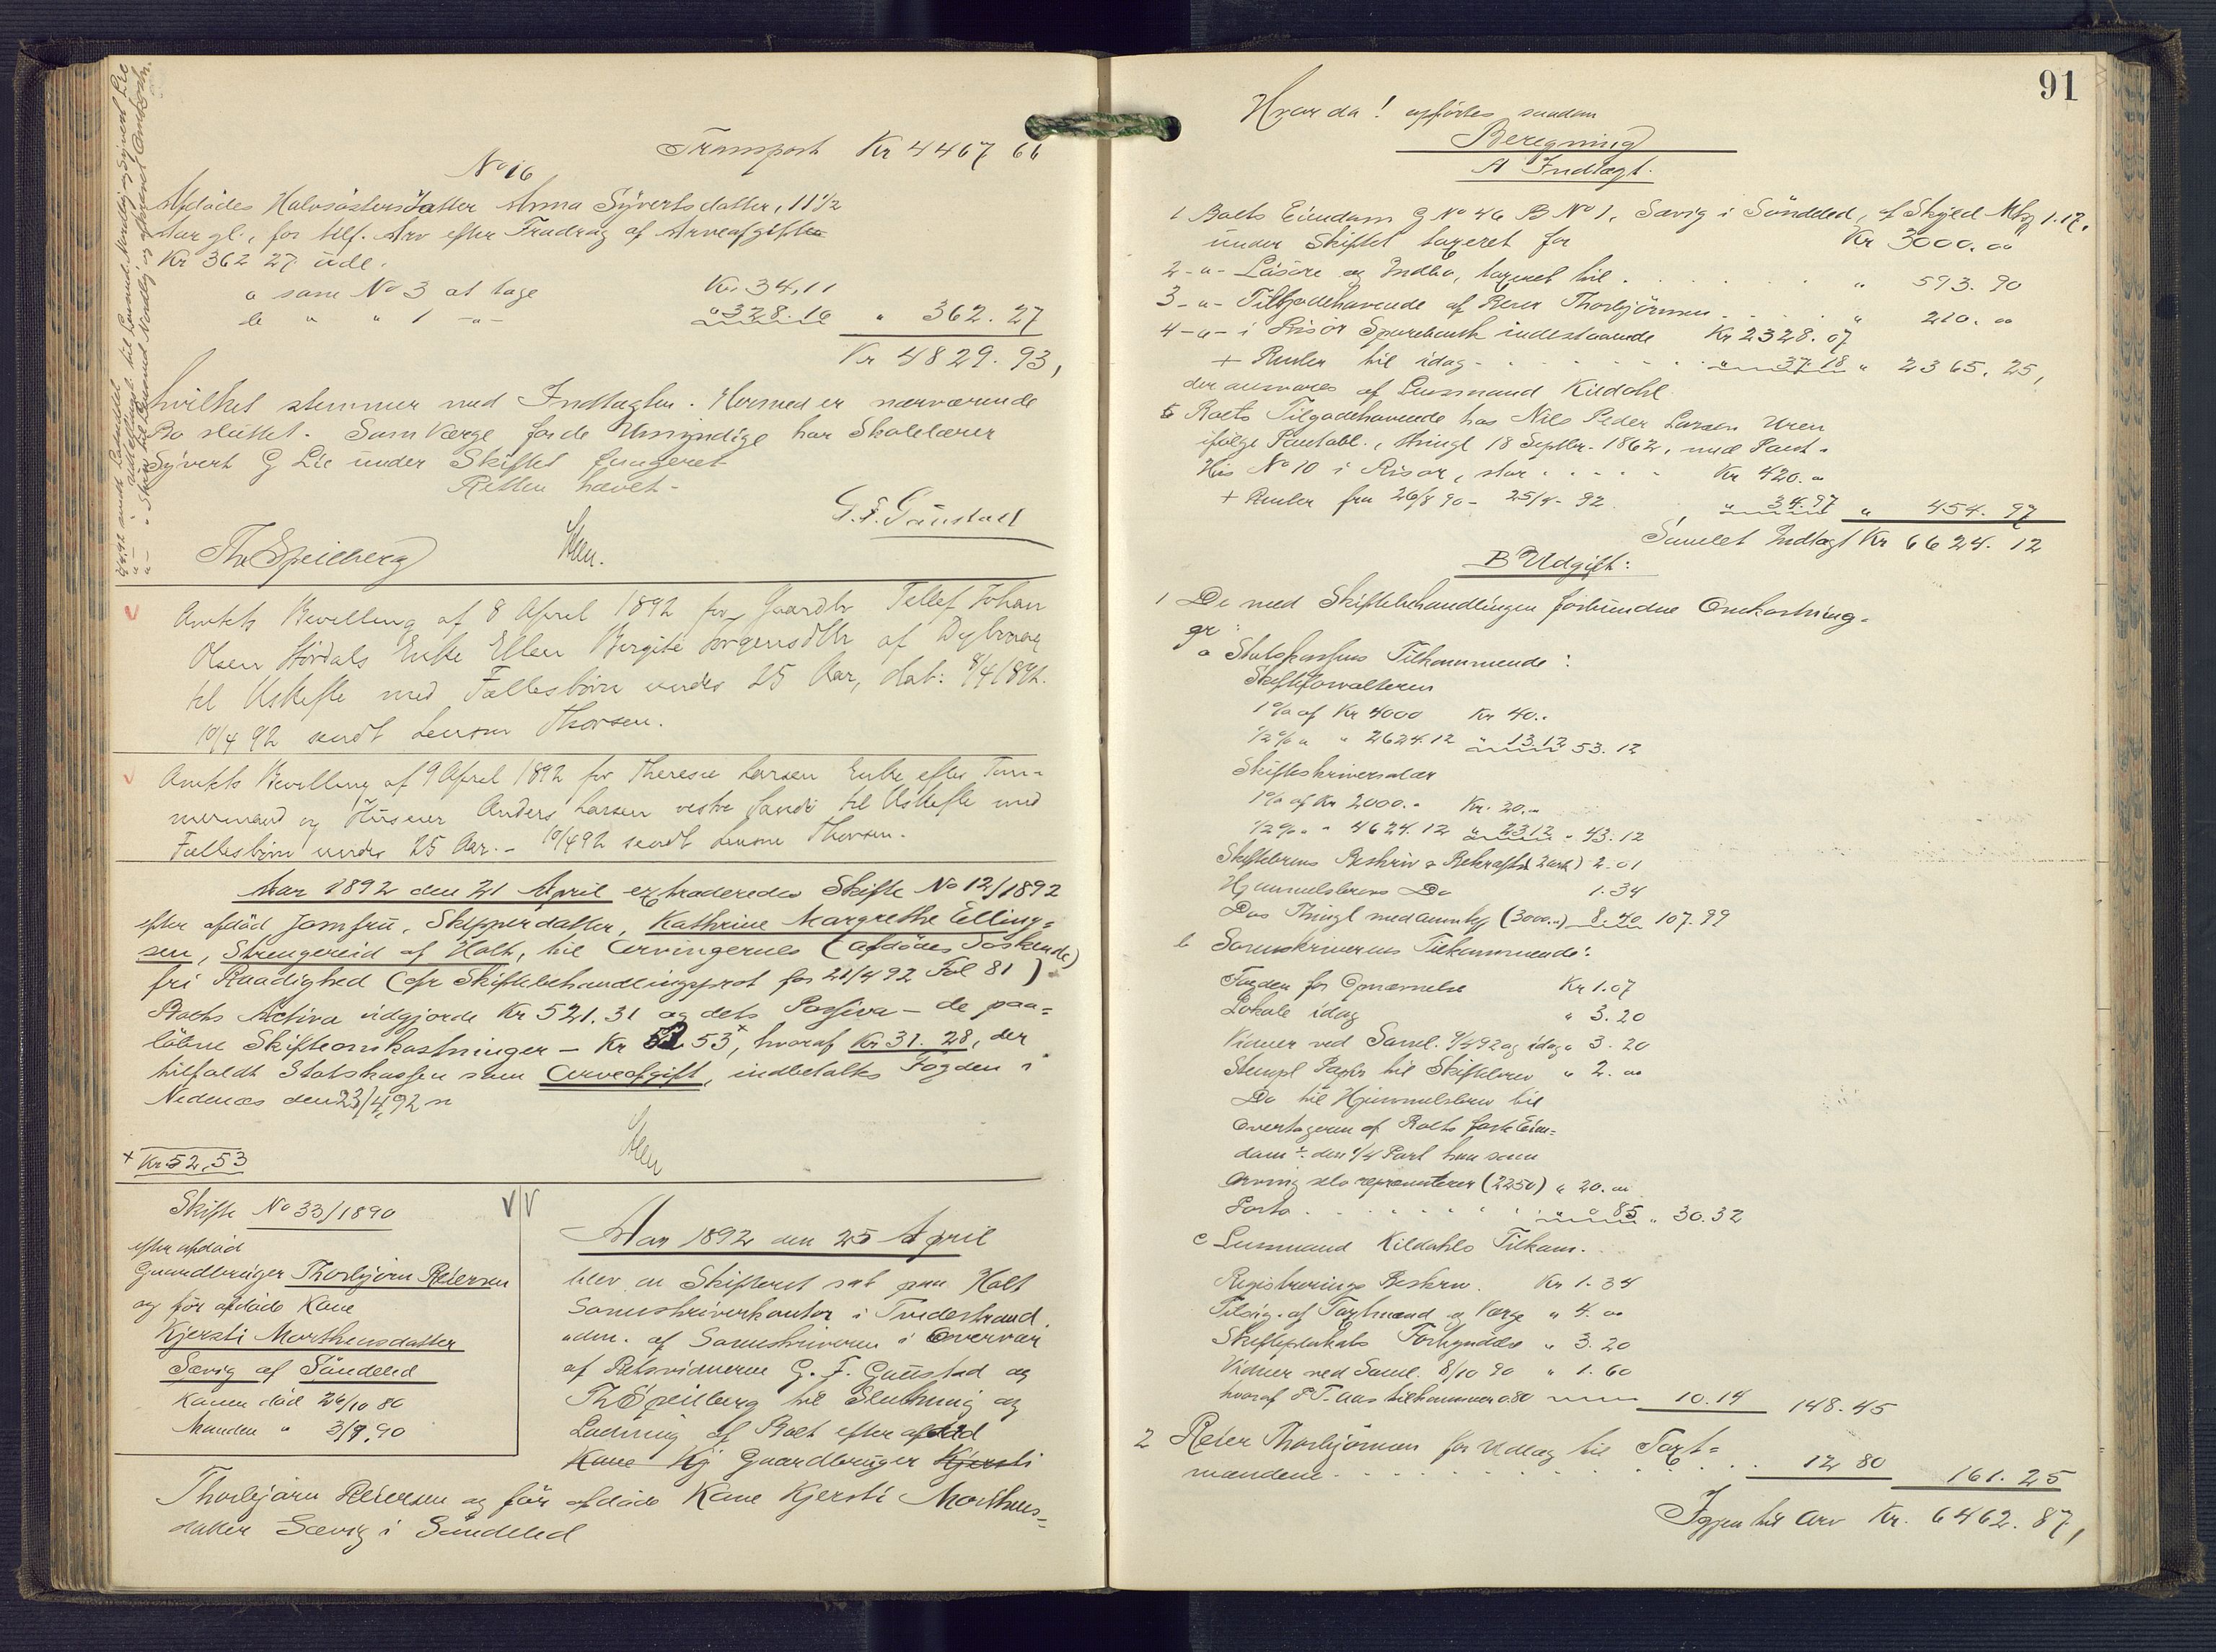 Transport Kr 4467 66
No 16
Afdødes Halvsøsters Datter Anna Syvertsdatter, 11 1/2
Aar gl., for tilf. Arv efter Fradrag af Arveafgiften
Kr 362 27 udl.
a som No 3 at tage Kr 34,11
b " " 1 -"- " 328.16 " 362.27
Kr 4829.93,
hvilket stemmer med Indtægten. Hermed er nærværende
Bo sluttet. Som Værge for de Umyndige har Skolelærer
Syvert G Lie under Skiftet fungeret
Retten hævet-
G. F. Gunstad
Th Speilberg
Amtets Bevilling af 8 April 1892 for Gaardbr Tellef Johan
Olsen Hørdals Enke Ellen Birgite Jørgensdtr af Dybvaag
til Uskifte med Fællesbørn under 25 Aar, dat: 8/4 1892.
10/4 92 sendt Lensm Thorsen.
Amtets Bevilling af 9 April 1892 for Therese Larsen Enke efter Tøm-
mermand og Huseier Anders Larsen vestre Sandø til Uskifte med
Fællesbørn under 25 Aar. - 10/4 92 sendt Lensm Thorsen.
Aar 1892 den 21 April extraderedes Skifte No 12/1892
efter afdød Jomfru, Skipperdatter, Kathrine Margrethe Elling-
sen, Strengereid af Holt, til Arvingernes (afdødes Søskende)
fri Raadighed (cfr Skiftebehandlingsprot for 21/4 92 Fol 81)
Boets Activa udgjorde Kr 521.31 og dets Passiva - de paa-
løbne Skifteomkostninger - Kr 52 53x, hvoraf Kr 31.28, der
tilfaldt Statskassen som Arveafgift, indbetaltes Fogden i
Nedenæs den 23/4 92
x Kr 52,53
Skifte No 33/1890
efter afdød
Gaardbruger Thorbjørn Reiersen
og før afdøde Kone
Kjersti Morthensdatter
Sævig af Søndeled
Konen død 26/10 80
Manden " 3/9.90
Aar 1892 den 25 April
blev en Skifteret sat paa Holt
Sorenskriverkontor i Tvedestrand.
adm. af Sorenskriveren i Overvær
af Retsvidnerne G. F. Gunstad og
Th Speilberg til Slutning og
Lodning af Boet efter afdød
Kone Kj Gaardbruger Kjersti
Thorbjørn Reiersen og før afdøde Kone Kjersti Morthens-
datter Sævig i Søndeled
91
Hvorda! opførtes saadan
Beregning
A Indtægt.
1 Boets Eiendom G No 46 B No 1, Sævig i Søndeled, af Skyld Mk 1.17,
under Skiftet taxeret for Kr 3000.00
2 -"- Løsøre og Indbo, taxeret til . . . . " 593.90
3 -"- Tilgodehavende af Reier Thorbjørnsen . . . " 210.00
4 -"- i Risør Sparebank indestaaende Kr 2328.07
+ Renter til idag - . . . . . " 37.18 " 2365.25,
der ansvares af Lensmand Kildahl
5 Boets Tilgodehavende hos Nils Peder Larsen Uren
ifølge Pantobl., thingl 18 Septbr. 1862, med Pant i
Hus No 10 i Risør, stor . . . . . Kr 420.00
+ Renter fra 26/8 90 - 25/4 - 92 " 34.97 " 454.97
Samlet Indtægt Kr 6624.12
B Udgift:
1 De med Skiftebehandlingen forbundne Omkostnin-
ger:
a Statskassens Tilkommende:
Skifteforvalteren
1% af Kr 4000 Kr 40..
1/2% " " 2624.12 " 13.12 53.12
Skifteskriversalær
1% af Kr 2000.. Kr. 20..
1/2% " " 4624.12 " 23.12 " 43.12
Skiftebrevs Beskriv & Bekræfts (2 ark) 2.01
Hjemmelsbrevs Do 1.34
Dets Thingl med (3000..) 8.40 107.99
b Sorenskriverens Tilkommende:
Fogden for Opnævnelse Kr 1.07
Lokale idag " 3.20
Vidner ved Saml. 9/4 92 og idag " 3.20
Stempl Papir til Skiftebrev " 2.00
Do til Hjemmelsbrev til
Overtageren af Boets faste Eien-
dom ÷ den 1/4 Part han som
Arving selv repræsenterer (2250) " 20.00
Porto . . . . . . . " 0 85 " 30.32
c Lensmand Kildahls Tilkom.
Registrerings Beskriv. Kr 1.34
Tilsig. af Taxtmænd og Værge " 4.00
Skifteplakats Forkyndelse " 3.20
Vidner ved Saml. 8/10 90 " 1.60
hvoraf P T. Aas tilkommer 0.80 10.14 148.45
2 Reier Thorbjørnsen for Udlæg til Taxt-
mændene . . . . . . . . 12 80 161.25
Igjen til Arv Kr. 6462.87,